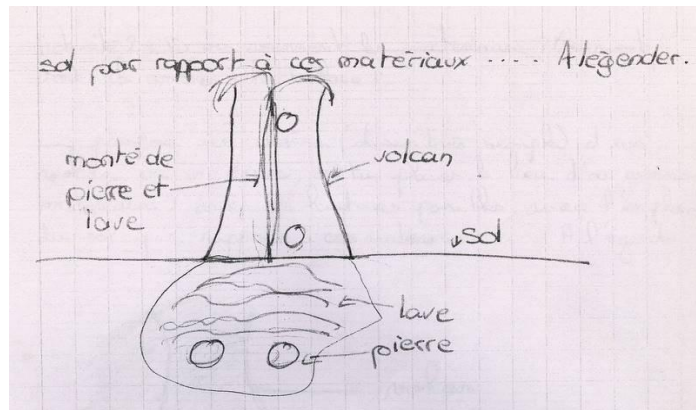 sol par rapport à ces matériaux ..... A légender.
monté de
pierre et
lave
volcan
sol
lave
pierre